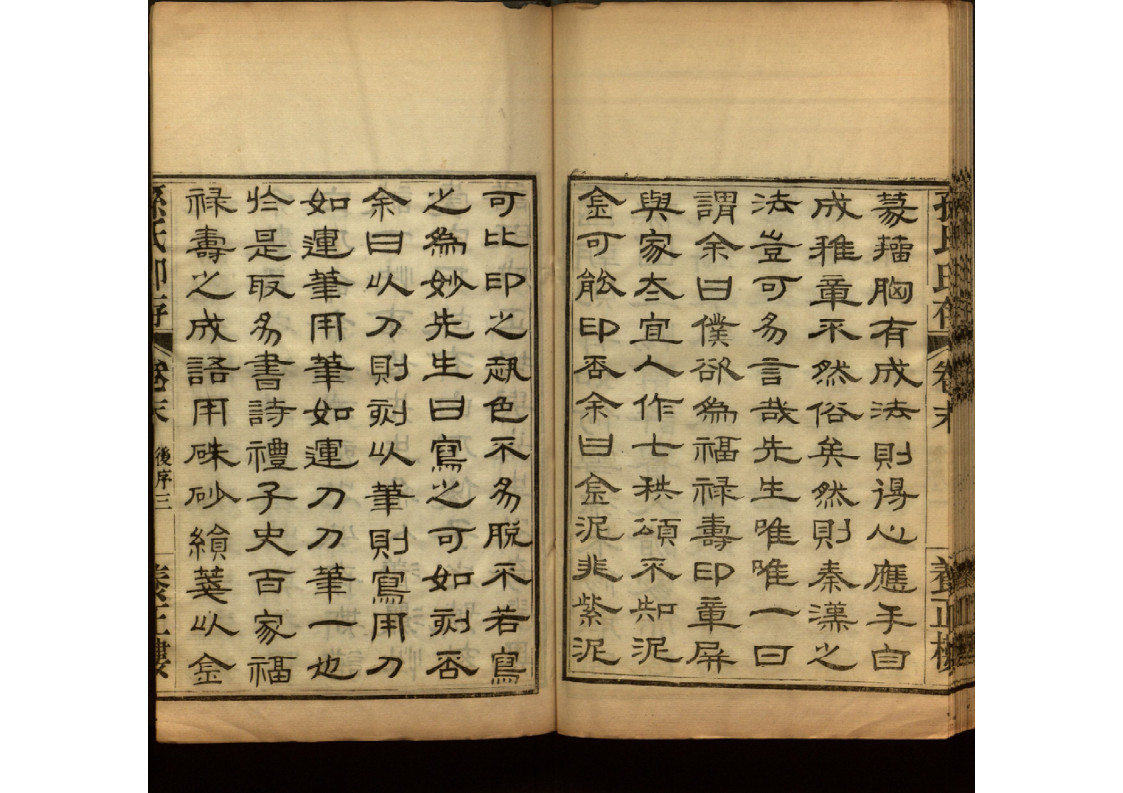 孫氏印存 卷末 養正樓
篆籀胸有成法則得心應手自
成雅章不然俗矣然則秦漢之
法豈可易言哉先生唯唯一日
謂余曰僕欲為福禄壽印章屏
與家夳宜人作七秩頌不知泥
金可能印否余曰金泥非紫泥
可比印之色不易脱不若寫
之為妙先生曰寫之可如刻否
余曰以刀則刻以筆則寫用刀
如運筆用筆如運刀刀筆一也
於是取易書詩禮子史百家福
禄壽之成語用硃砂繪箋以金
孫氏印存 卷末 後序三 養正樓